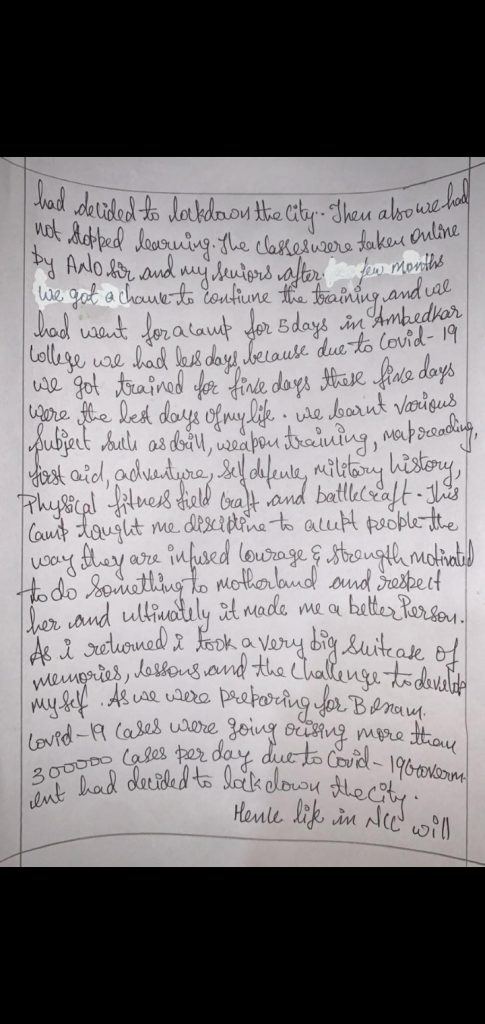 had decided to lockdown the City. Then also we had
not stopped learning. The classes were taken online
by ANO Sir and my seniors after few months
we got a chance to continue the training, and we
had went for a camp for 5 days in Ambedkar
College we had less days because due to Covid-19
we got trained for five days these five days
were the best days of my life. we learnt various
Subject such as drill, weapon training, map reading,
first aid, adventure, self defence, military history,
Physical fitness field craft and battlecraft. This
Camp tought me discipline to accept people the
way they are infused courage & strength motivated
to do Something to motherland and respect
her and ultimately it made me a better Person.
As i returned i took a very big suitcase of
memories, lessons and the challenge to develop
myself. As we were preparing for B exam.
Covid-19 Cases were going rising more than
300000 Cases per day due to Covid-19 Governm
ent had decided to lock down the City.
Hence life in NCC will